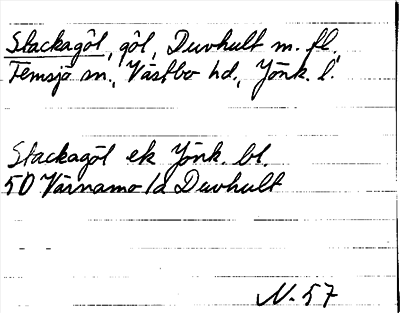 Stackagöl, göl, Duvhult m. fl.
Femsjö sn., Västbo hd, Jönk. l.
Stackagöl ek Jönk. bl.
50 Värnamo /a Duvhult
N. 57